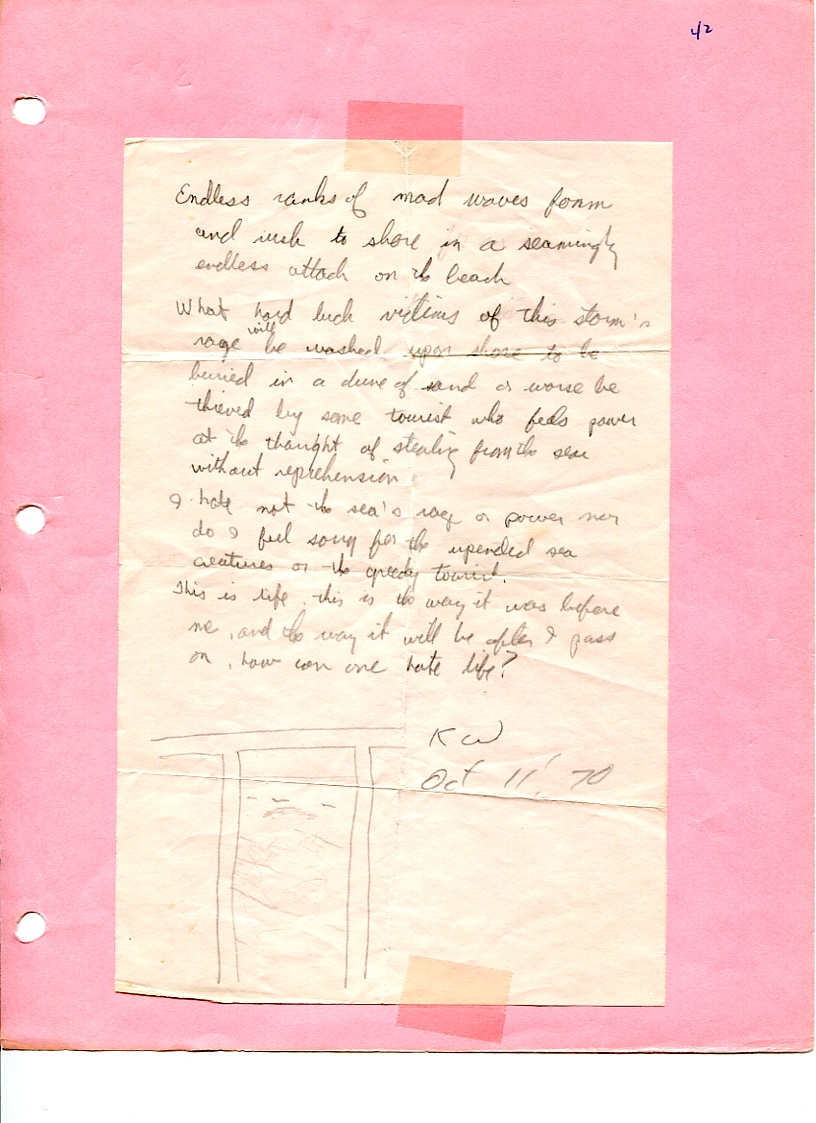 42
Endless ranks of mad waves foam
and rush to shore in a seamingly
endless attack on the beach
What hard luck victims of this storm's
rage will be washed upon shore to be
buried in a dune of sand or worse be
thieved by some tourist who feels power
at the thought of stealing from the sea
without reprehension
I hate not the sea's rage or power nor
do I feel sorry for the upended sea
creatures or the greedy tourist.
This is life, this is the way it was before
me, and the way it will be after I pass
on, how can one hate life?
KW
Oct 11, '70